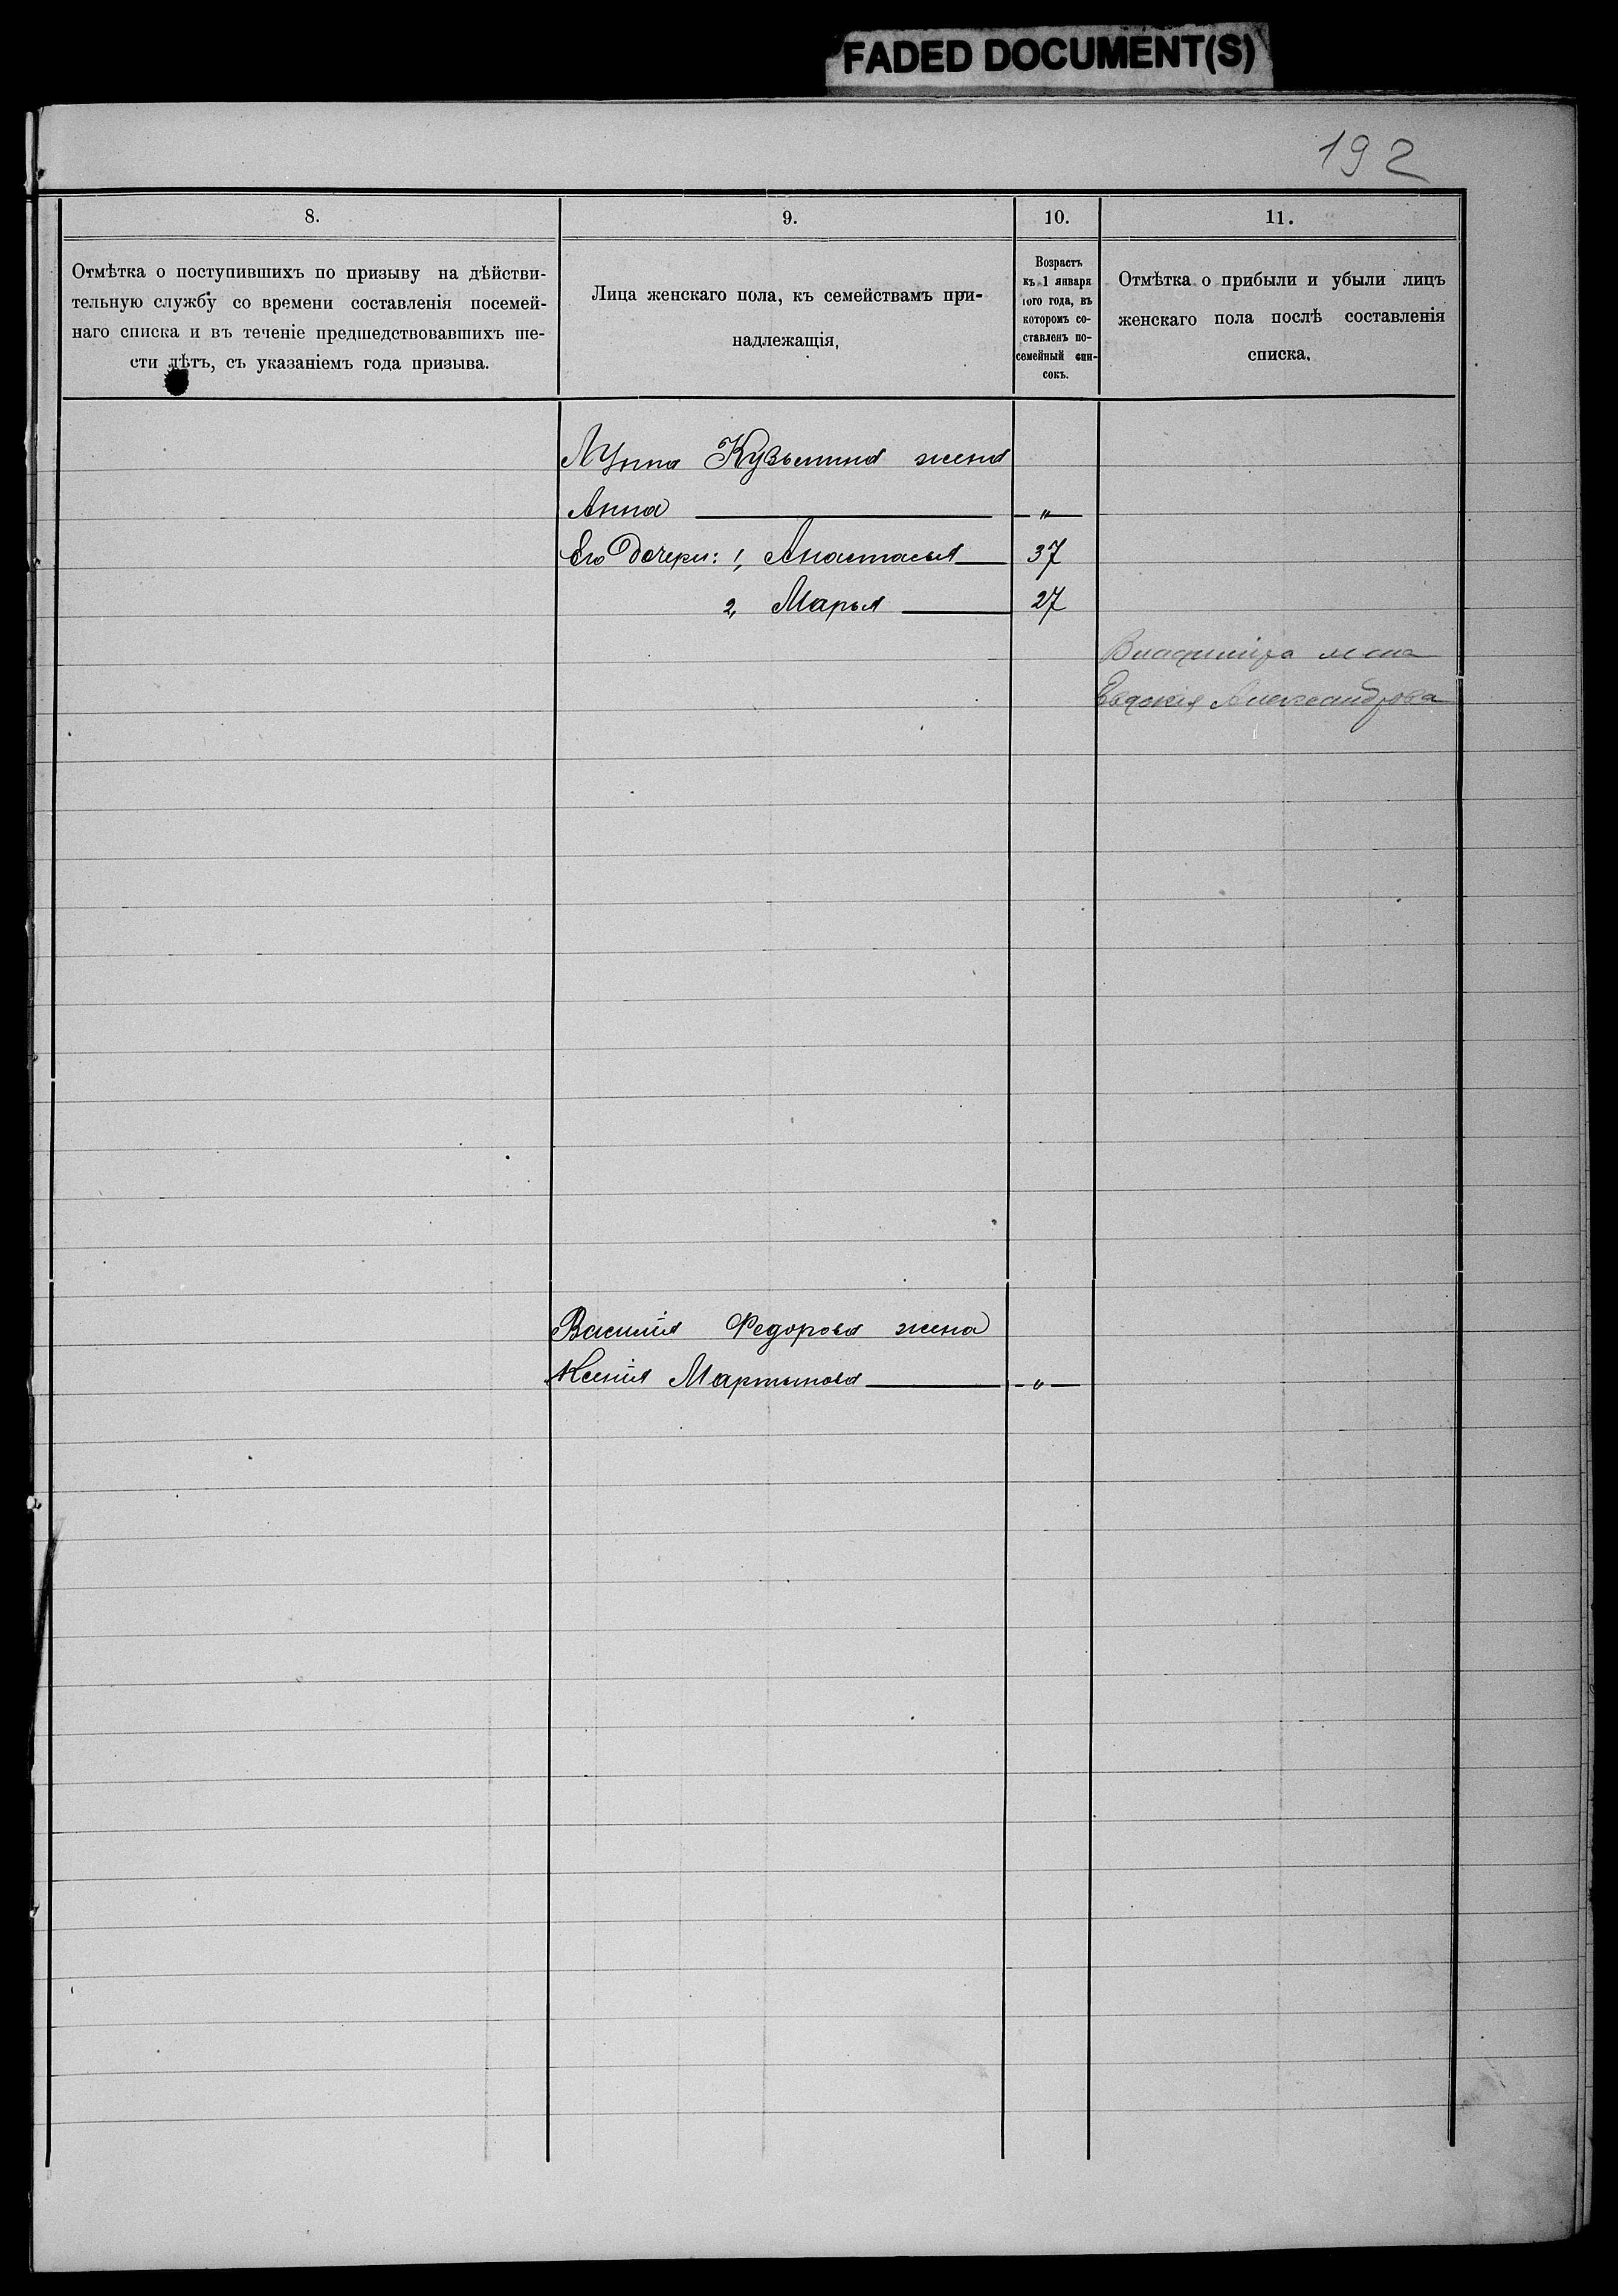 FADED DOCUMENT(S)
192
8.
9.
10.
11.
Отмѣтка о поступившихъ по призыву на дѣйстви-
тельную службу со времени составленія посемей-
наго списка и въ теченіе предшедствовавшихъ ше-
сти лѣтъ, съ указаніемъ года призыва.
Лица женскаго пола, къ семействамъ при-
надлежащія,
Возрастъ
къ 1 января
того года, въ
которомъ со-
ставленъ по-
семейный спи-
сокъ.
Отмѣтка о прибыли и убыли лицъ
женскаго пола послѣ составленія
списка.
Кузьмина жена
Анна — „ —
Его дочери: 1, Анастасья 37
2, Марья 27
Владиміра жена
Евдокія Александрова
Василія Федорова жена
Ксенія Мартынова — „ —